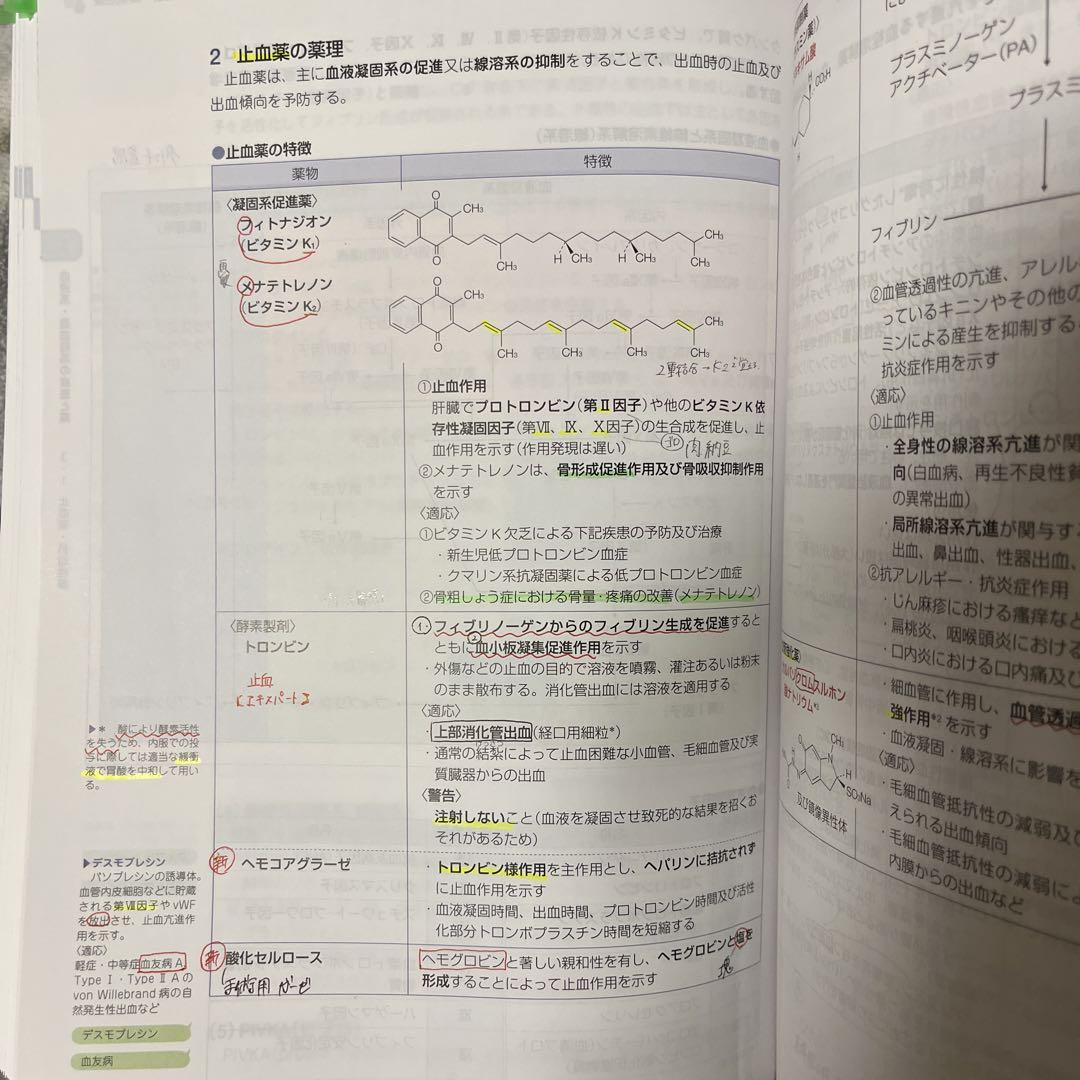 2 止血薬の薬理
止血薬は、主に血液凝固系の促進又は線溶系の抑制をすることで、出血時の止血及び
出血傾向を予防する。
●止血薬の特徴
薬物
特徴
〈凝固系促進薬〉
フィトナジオン
(ビタミンK₁)
メナテトレノン
(ビタミンK₂)
O
CH₃
O
CH₃
H
CH₃
H
CH₃
CH₃
CH₃
O
CH₃
O
CH₃
CH₃
CH₃
CH₃
CH₃
①止血作用
肝臓でプロトロンビン(第Ⅱ因子)や他のビタミンK依
存性凝固因子(第Ⅶ、Ⅸ、Ⅹ因子)の生合成を促進し、止
血作用を示す(作用発現は遅い)
肉納豆
②メナテトレノンは、骨形成促進作用及び骨吸収抑制作用
を示す
〈適応〉
①ビタミンK欠乏による下記疾患の予防及び治療
・新生児低プロトロンビン血症
・クマリン系抗凝固薬による低プロトロンビン血症
②骨粗しょう症における骨量・疼痛の改善(メナテトレノン)
〈酵素製剤〉
トロンビン
止血
【エキスパート】
①フィブリノーゲンからのフィブリン生成を促進すると
ともに血小板凝集促進作用を示す
・外傷などの止血の目的で溶液を噴霧、灌注あるいは粉末
のまま散布する。消化管出血には溶液を適用する
〈適応〉
・上部消化管出血(経口用細粒*)
・通常の結紮によって止血困難な小血管、毛細血管及び実
質臓器からの出血
〈警告〉
注射しないこと(血液を凝固させ致死的な結果を招くお
それがあるため)
新
ヘモコアグラーゼ
・トロンビン様作用を主作用とし、ヘパリンに拮抗されず
に止血作用を示す
・血液凝固時間、出血時間、プロトロンビン時間及び活性
化部分トロンボプラスチン時間を短縮する
新
酸化セルロース
手術用 ガーゼ
ヘモグロビンと著しい親和性を有し、ヘモグロビンと塩を
形成することによって止血作用を示す
▶* 酸により酵素活性
を失うため、内服での投
与に際しては適当な緩衝
液で胃酸を中和して用い
る。
▶デスモプレシン
バソプレシンの誘導体。
血管内皮細胞などに貯蔵
される第Ⅷ因子やvWF
を放出させ、止血亢進作
用を示す。
〈適応〉
軽症・中等症血友病A、
TypeⅠ・TypeⅡAの
von Willebrand病の自
然発生性出血など
デスモプレシン
血友病
CO₂H
プラスミノーゲン
アクチベーター(PA)
プラスミ
フィブリン
②血管透過性の亢進、アレル
っているキニンやその他の
ミンによる産生を抑制する
抗炎症作用を示す
〈適応〉
①止血作用
・全身性の線溶系亢進が関
向(白血病、再生不良性貧
の異常出血)
・局所線溶系亢進が関与す
出血、鼻出血、性器出血、
②抗アレルギー・抗炎症作用
・じん麻疹における瘙痒など
・扁桃炎、咽喉頭炎における
・口内炎における口内痛及び
クロムスルホン
ナトリウム*³
CH₃
N
H
SO₃Na
及び鏡像異性体
・細血管に作用し、血管透過
強作用*²を示す
・血液凝固・線溶系に影響を
〈適応〉
・毛細血管抵抗性の減弱及び
えられる出血傾向
・毛細血管抵抗性の減弱によ
内膜からの出血など